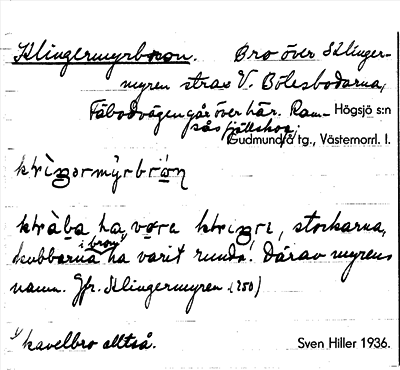 Klingermyrbron. Bro över Klinger-
myren strax V. Bölesbodarna,
Fäbodvägen går över här. Ram-
sås fjällskog, Högsjö s:n
Gudmundrå tg., Västernorrl. l.
stockarna,
kubbarna i bron ha varit runda. Därav myrens
namn. Jfr. Klingermyren (250)
kavelbro alltså.
Sven Hiller 1936.